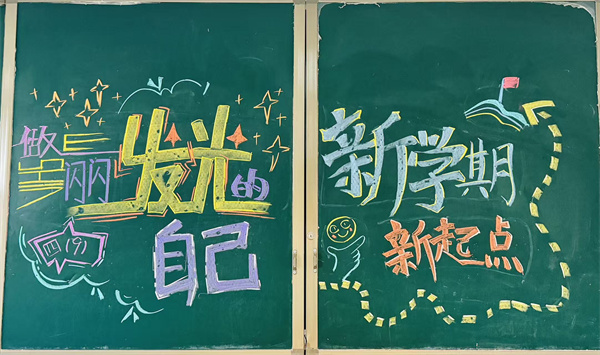 做
闪闪发光的
自己
四(9)
新学期
新起点